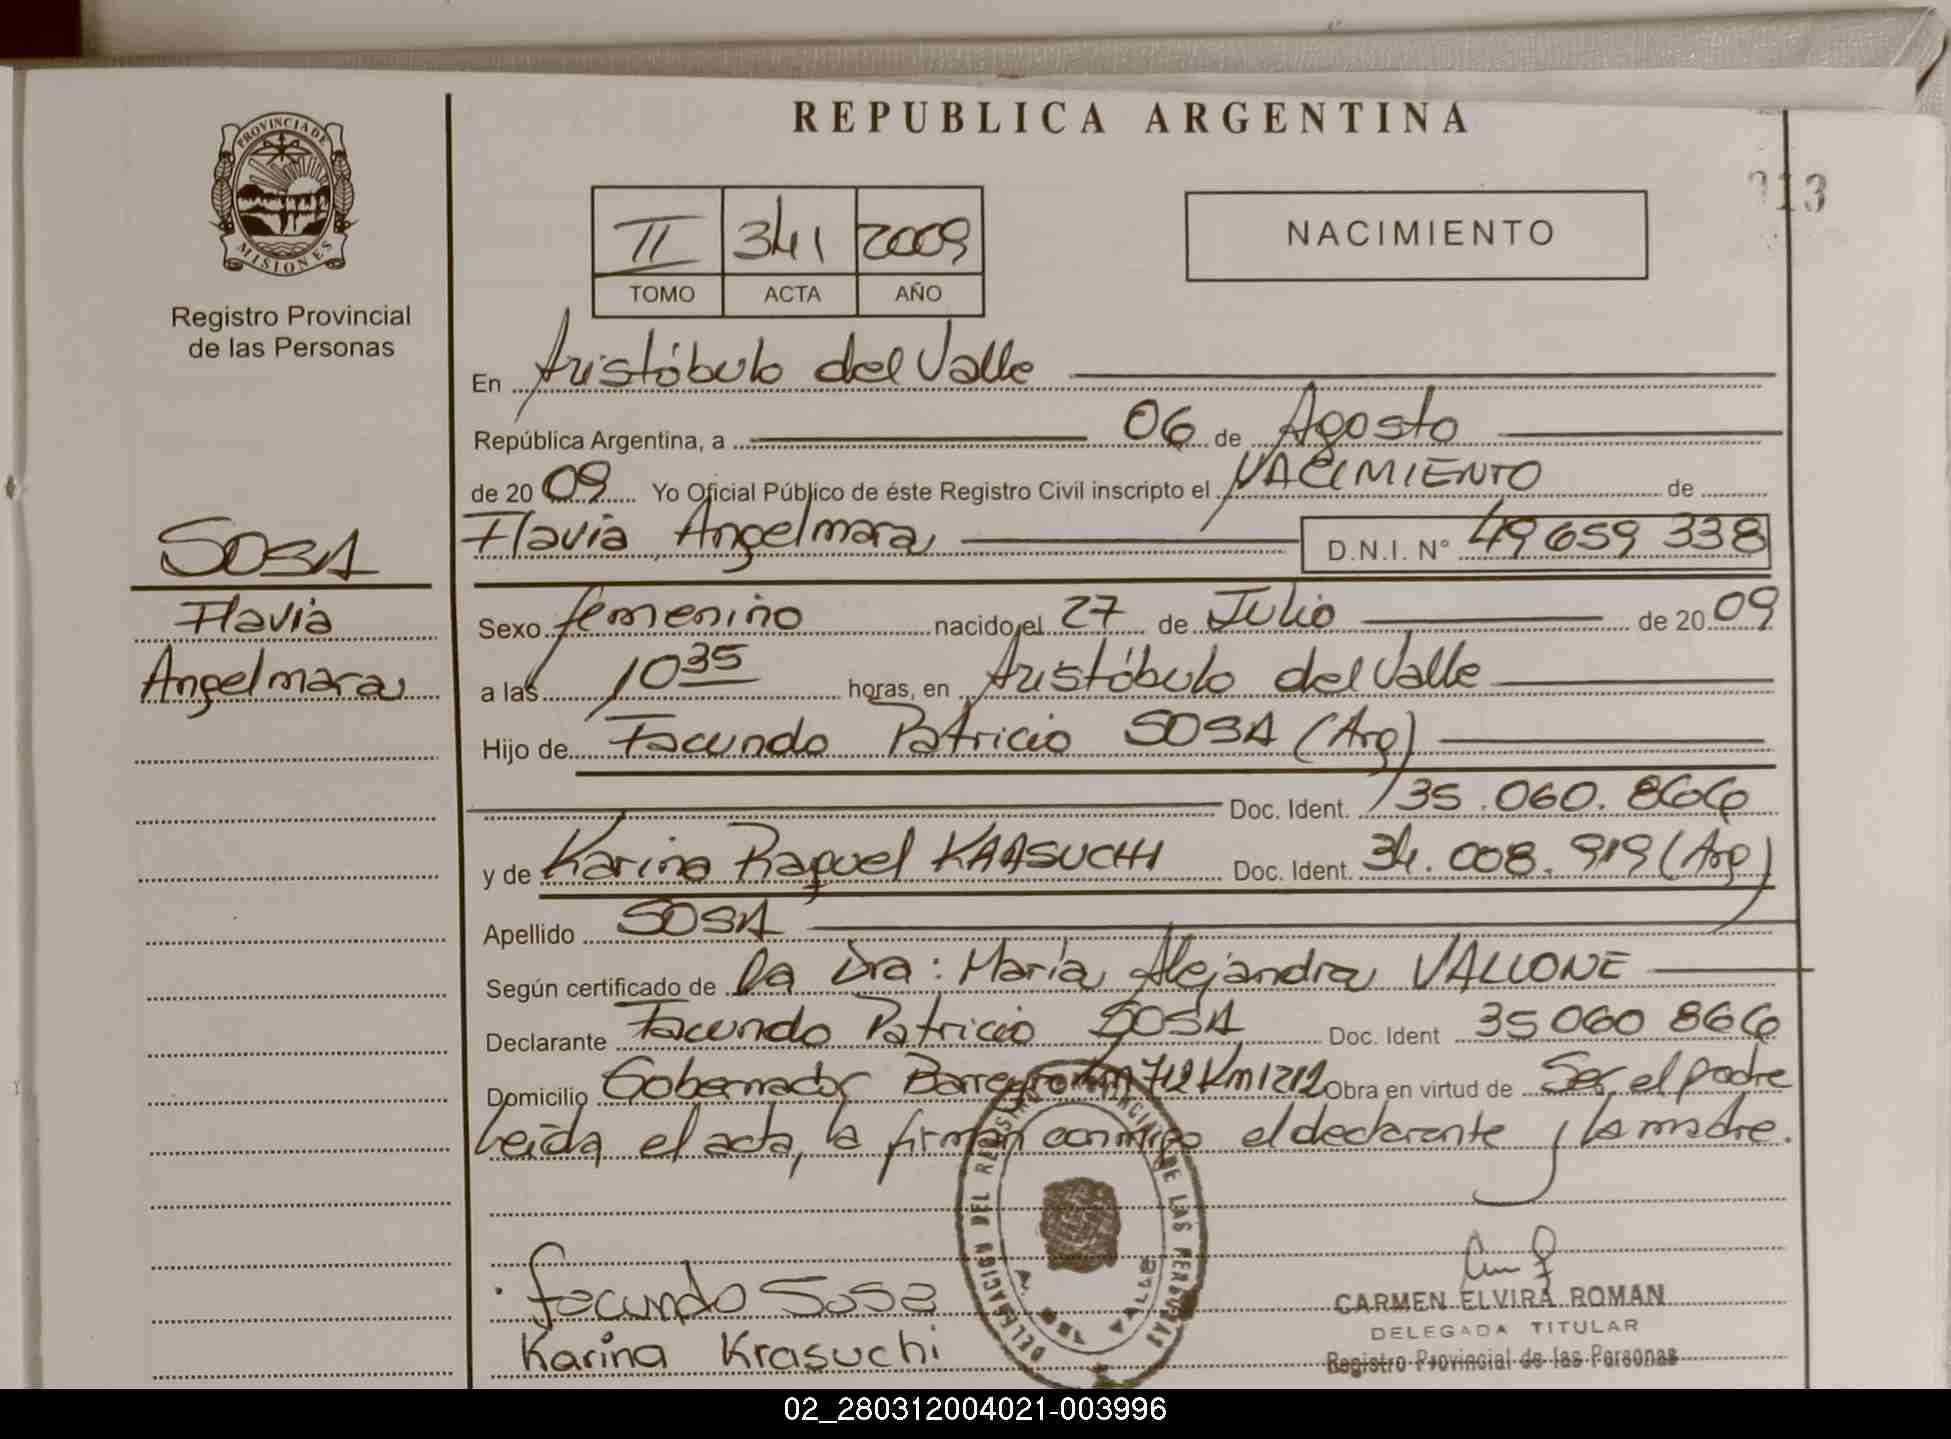 REPUBLICA ARGENTINA
PROVINCIA DE
MISIONES
Registro Provincial
de las Personas
II 341 2009
TOMO ACTA AÑO
NACIMIENTO
13
En Aristóbulo del Valle
República Argentina, a 06 de Agosto
de 20 09 Yo Oficial Público de éste Registro Civil inscripto el NACIMIENTO de
SOSA
Flavia Angelmara D.N.I. N° 49 659 338
Flavia
Angelmara
Sexo femenino nacido el 27 de Julio de 20 09
a las 10 35 horas, en Aristóbulo del Valle
Hijo de Facundo Patricio SOSA (Arg)
Doc. Ident. 35.060.866
y de Karina Raquel KRASUCHI Doc. Ident. 34.008.919 (Arg)
Apellido SOSA
Según certificado de la Dra: María Alejandra VALLONE
Declarante Facundo Patricio SOSA Doc. Ident 35 060 866
Domicilio Gobernador Barreyro Km 1212 Obra en virtud de Ser el padre
Leida el acta, la firman conmigo el declarante y la madre.
DELEGACION DEL REGISTRO PROVINCIAL DE LAS PERSONAS
A. DEL VALLE
Facundo Sosa
Karina Krasuchi
CARMEN ELVIRA ROMAN
DELEGADA TITULAR
Registro Provincial de las Personas
02_280312004021-003996